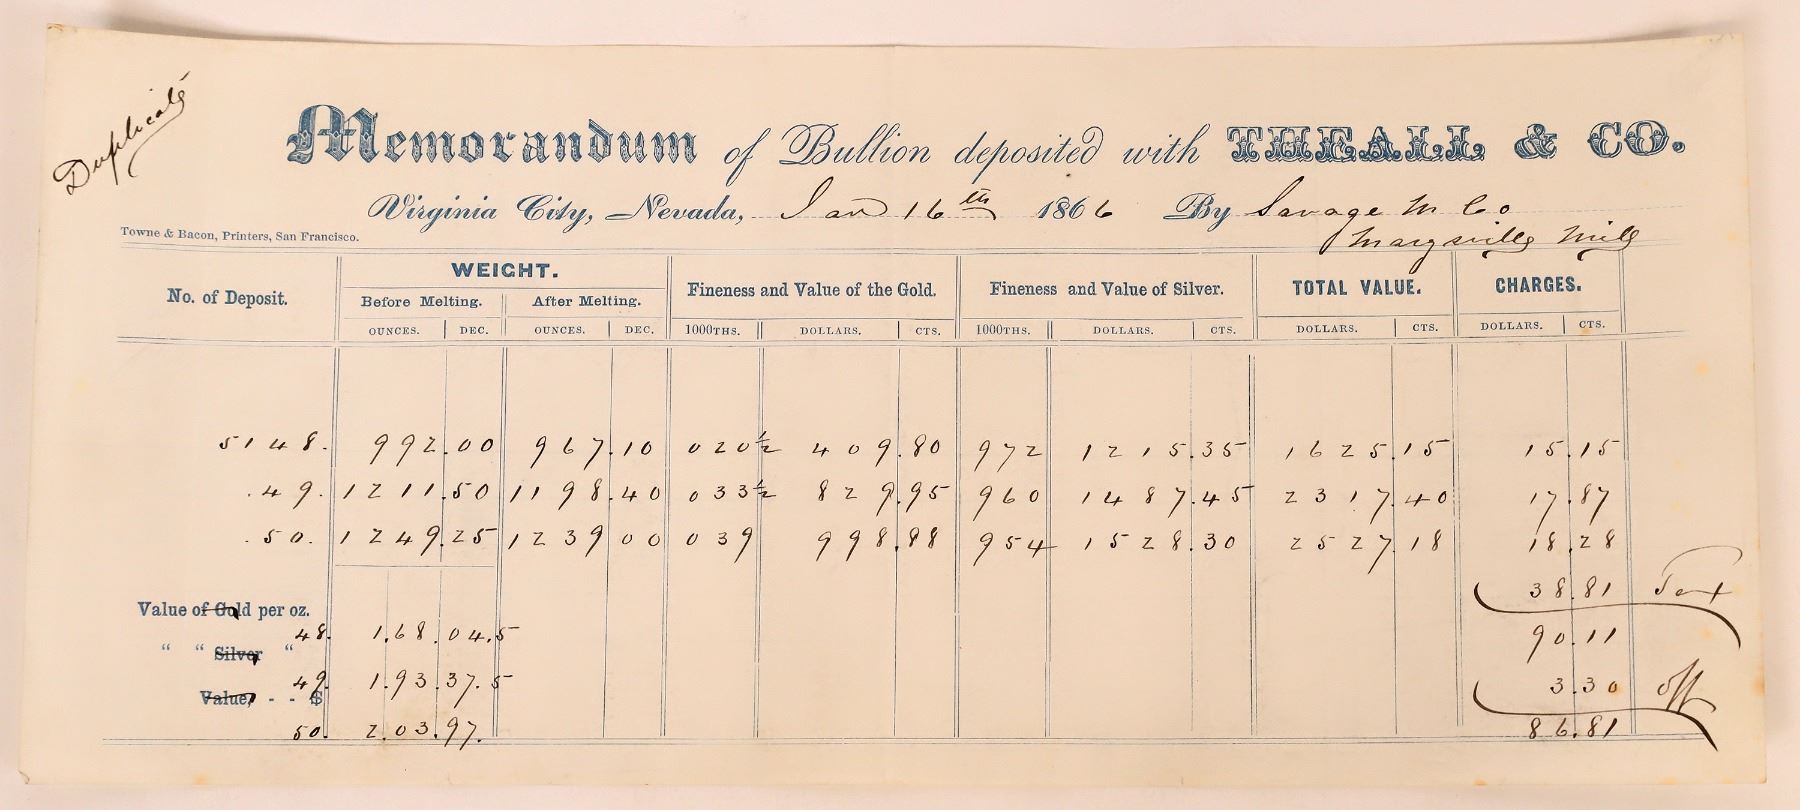 Duplicate
Memorandum of Bullion deposited with THEALL & CO.
Virginia City, Nevada, Jan 16th 1866 By Savage M Co
Marysville Mill
Towne & Bacon, Printers, San Francisco.
No. of Deposit. WEIGHT. Fineness and Value of the Gold. Fineness and Value of Silver. TOTAL VALUE. CHARGES.
Before Melting. After Melting.
OUNCES. DEC. OUNCES. DEC. 1000THS. DOLLARS. CTS. 1000THS. DOLLARS. CTS. DOLLARS. CTS. DOLLARS. CTS.
5148. 992.00 967.10 020½ 409.80 972 1215.35 1625.15 15.15
.49. 1211.50 1198.40 033½ 829.95 960 1487.45 2317.40 17.87
.50. 1249.25 1239 00 039 998.88 954 1528.30 2527.18 18.28
38.81 Tax
Value of Gold per oz.
48. 1.68.04.5 90.11
" " Silver "
49. 1.93.37.5 3.30 off
Value, - - $
50. 2.03.97. 86.81